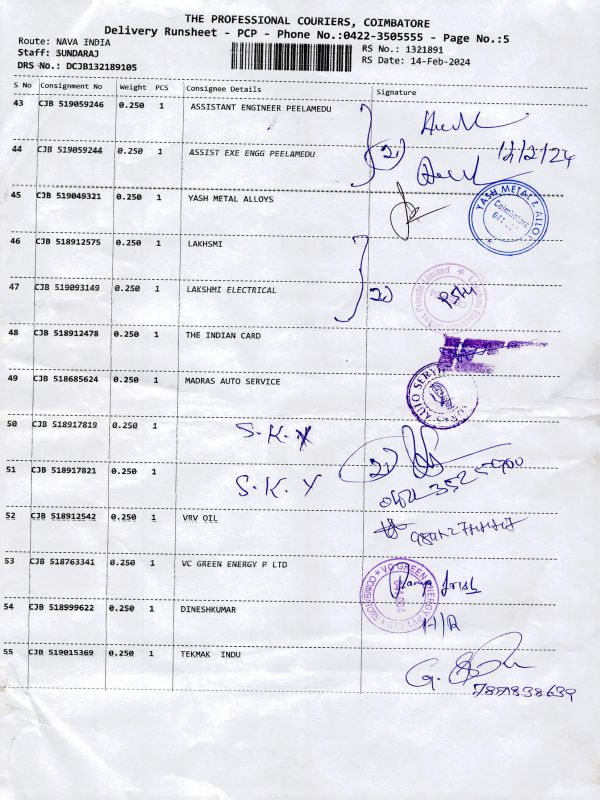 THE PROFESSIONAL COURIERS, COIMBATORE
Delivery Runsheet - PCP - Phone No.:0422-3505555 - Page No.:5
Route: NAVA INDIA
RS No.: 1321891
Staff: SUNDARAJ
RS Date: 14-Feb-2024
DRS No.: DCJB132189105
S No Consignment No Weight PCS Consignee Details Signature
43 CJB 519059246 0.250 1 ASSISTANT ENGINEER PEELAMEDU
44 CJB 519059244 0.250 1 ASSIST EXE ENGG PEELAMEDU
45 CJB 519049321 0.250 1 YASH METAL ALLOYS
YASH METAL & ALLO
Coimbatore
46 CJB 518912575 0.250 1 LAKHSMI
47 CJB 519093149 0.250 1 LAKSHMI ELECTRICAL
48 CJB 518912478 0.250 1 THE INDIAN CARD
49 CJB 518685624 0.250 1 MADRAS AUTO SERVICE
AUTO SERV
50 CJB 518917819 0.250 1 S.K.Y
51 CJB 518917821 0.250 1 S.K.Y
52 CJB 518912542 0.250 1 VRV OIL
53 CJB 518763341 0.250 1 VC GREEN ENERGY P LTD
VC GREEN ENERGY PVT LTD
COIMBATORE
54 CJB 518999622 0.250 1 DINESHKUMAR H/R
55 CJB 519015369 0.250 1 TEKMAK INDU